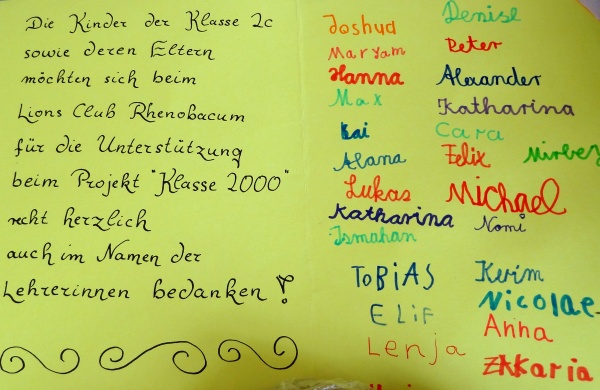 Die Kinder der Klasse 2c
sowie deren Eltern
möchten sich beim
Lions Club Rhenobacum
für die Unterstützung
beim Projekt "Klasse 2000"
recht herzlich
auch im Namen der
Lehrerinnen bedanken!
Joshua
Maryam
Hanna
Max
Kai
Alana
Lukas
Katharina
Ismahan
Tobias
Elif
Lenja
Denise
Peter
Alexander
Katharina
Cara
Felix
Michael
Nomi
Kerim
Nicolae
Anna
Zakaria